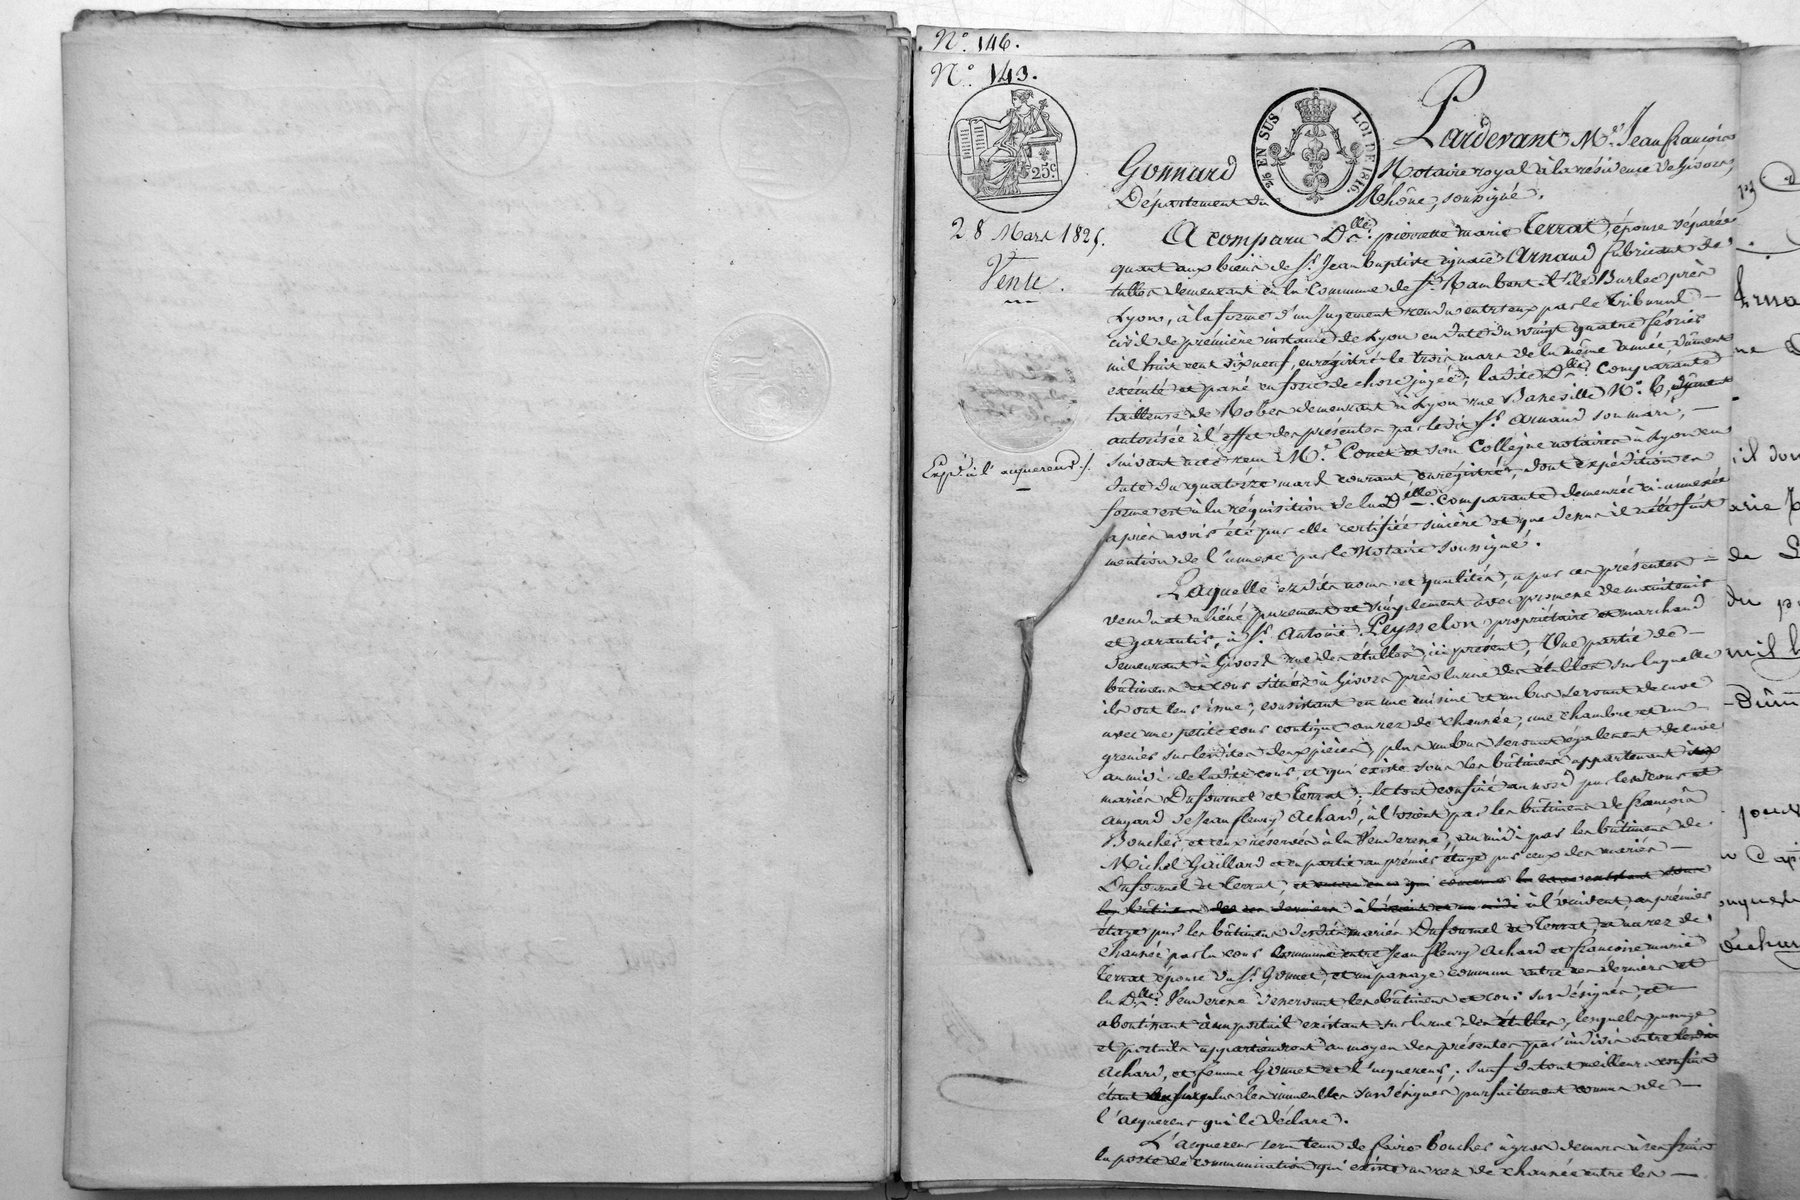 N.° 146.
N.° 143.
25.c
2/6 EN SUS
LOI DE 1816.
28 Mars 1825.
Vente.
Expé. à l'acquereur ./.
Pardevant M.e Jean françois
Gonnard Notaire royal à la résidence de Givors,
Département du Rhône, soussigné.
A comparu D.elle pierrette marie Terrat, épouse séparée
quant aux biens de S.r Jean baptiste ignace Arnaud fabricant de
tulles demeurant en la Commune de S.t Rambert L'ile Barbe près
Lyon, à la forme d'un jugement rendu entr'eux par le tribunal
civil de première instance de Lyon en date du vingt quatre février
mil huit cent dix neuf, enregistré le trois mars de la même année, dûment
exécuté et passé en force de chose jugée; ladite D.elle comparante
tailleuse de Robes demeurant à Lyon rue Bareville N.° 6, dûment
autorisée à l'effet des présentes par ledit S.r Arnaud son mari,
suivant acte reçu M.e Couet et son Collègue notaires à Lyon en
date du quatorze mars courant, enregistré, dont expédition en
forme est à la réquisition de lad. D.elle comparante demeurée ci-annexée
après avoir été par elle certifiée sincère et que dessus il a été fait
mention de l'annexe par le Notaire soussigné.
Laquelle esdits noms et qualités, a par ces présentes
vendu et aliéné purement et simplement avec promesse de maintenir
et garantir, à S.r Antoine Peysselon propriétaire et marchand
demeurant à Givors rue des étables, ici présent, Une partie de
bâtimens et cour située à Givors près la rue des étables sur laquelle
ils ont leur issue; consistant en une cuisine et un bas servant de cuve
avec une petite cour contigue au rez de chaussée, une chambre et un
grenier sur lesdites deux pièces, plus un bas servant également de cuve
au midi de ladite cour, et qui existe sous les bâtimens appartenant aux
mariés Dufournel et Terrat; le tout confiné au nord par les cour et
angard de Jean fleury Achard, à l'orient par les bâtimens de françois
Boucher et ceux réservés à la Venderesse, au midi par les bâtimens de
Michel Gaillard et en partie au premier étage par ceux des mariés
Dufournel et Terrat, à l'occident, au premier
étage par les bâtimens desdits mariés Dufournel et Terrat, et au rez de
chaussée par la cour commune entre Jean fleury Achard et françoise marie
Terrat épouse du S.r Gonnet, et un passage commun entre ces derniers et
la D.elle Venderesse desservant les bâtimens et cour susdésignés, et
aboutissant à un portail existant sur la rue des étables, lesquels passage
et portail appartiendront au moyen des présentes par indivis entre lesdits
Achard, et femme Gonnet et l'acquereur, sauf du tout meilleurs confins
étant les immeubles susdésignés, parfaitement connus de
l'acquereur qui le déclare.
L'acquereur sera tenu de faire boucher à gros de murs à ses frais
la porte de communication qui existe au rez de chaussée entre les